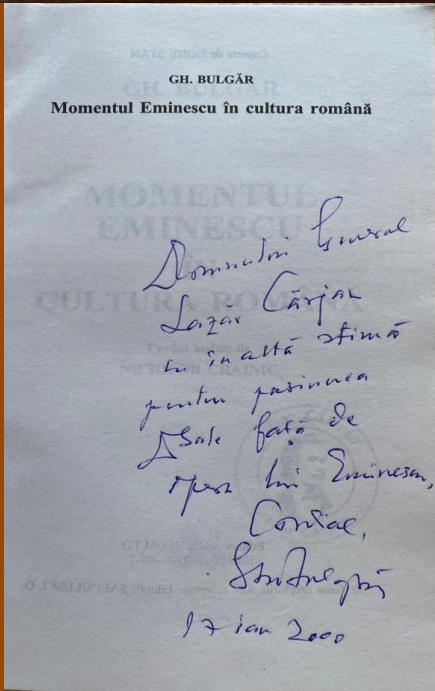 GH. BULGĂR
Momentul Eminescu în cultura română
Domnului General
Lazăr Cârjan
cu înaltă stimă
pentru pasiunea
Dsale față de
opera lui Eminescu,
Cordial,
17 ian 2000